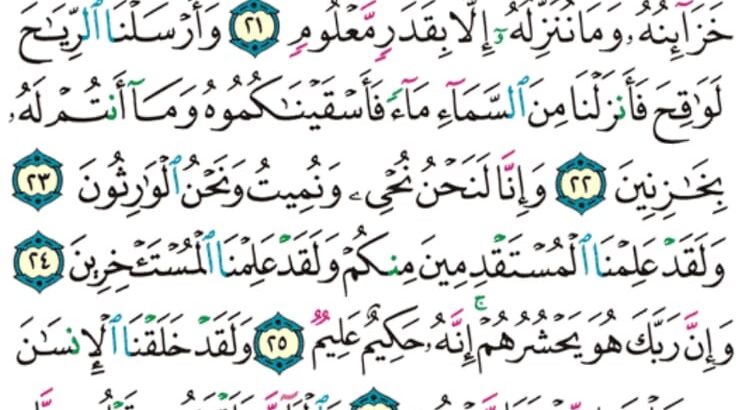 خَزَآئِنُهُۥ وَمَا نُنَزِّلُهُۥٓ إِلَّا بِقَدَرٍ مَّعْلُومٍ ٢١ وَأَرْسَلْنَا ٱلرِّيَٰحَ
لَوَٰقِحَ فَأَنزَلْنَا مِنَ ٱلسَّمَآءِ مَآءً فَأَسْقَيْنَٰكُمُوهُ وَمَآ أَنتُمْ لَهُۥ
بِخَٰزِنِينَ ٢٢ وَإِنَّا لَنَحْنُ نُحْىِۦ وَنُمِيتُ وَنَحْنُ ٱلْوَٰرِثُونَ ٢٣
وَلَقَدْ عَلِمْنَا ٱلْمُسْتَقْدِمِينَ مِنكُمْ وَلَقَدْ عَلِمْنَا ٱلْمُسْتَـْٔخِرِينَ ٢٤
وَإِنَّ رَبَّكَ هُوَ يَحْشُرُهُمْ ۚ إِنَّهُۥ حَكِيمٌ عَلِيمٌ ٢٥ وَلَقَدْ خَلَقْنَا ٱلْإِنسَٰنَ